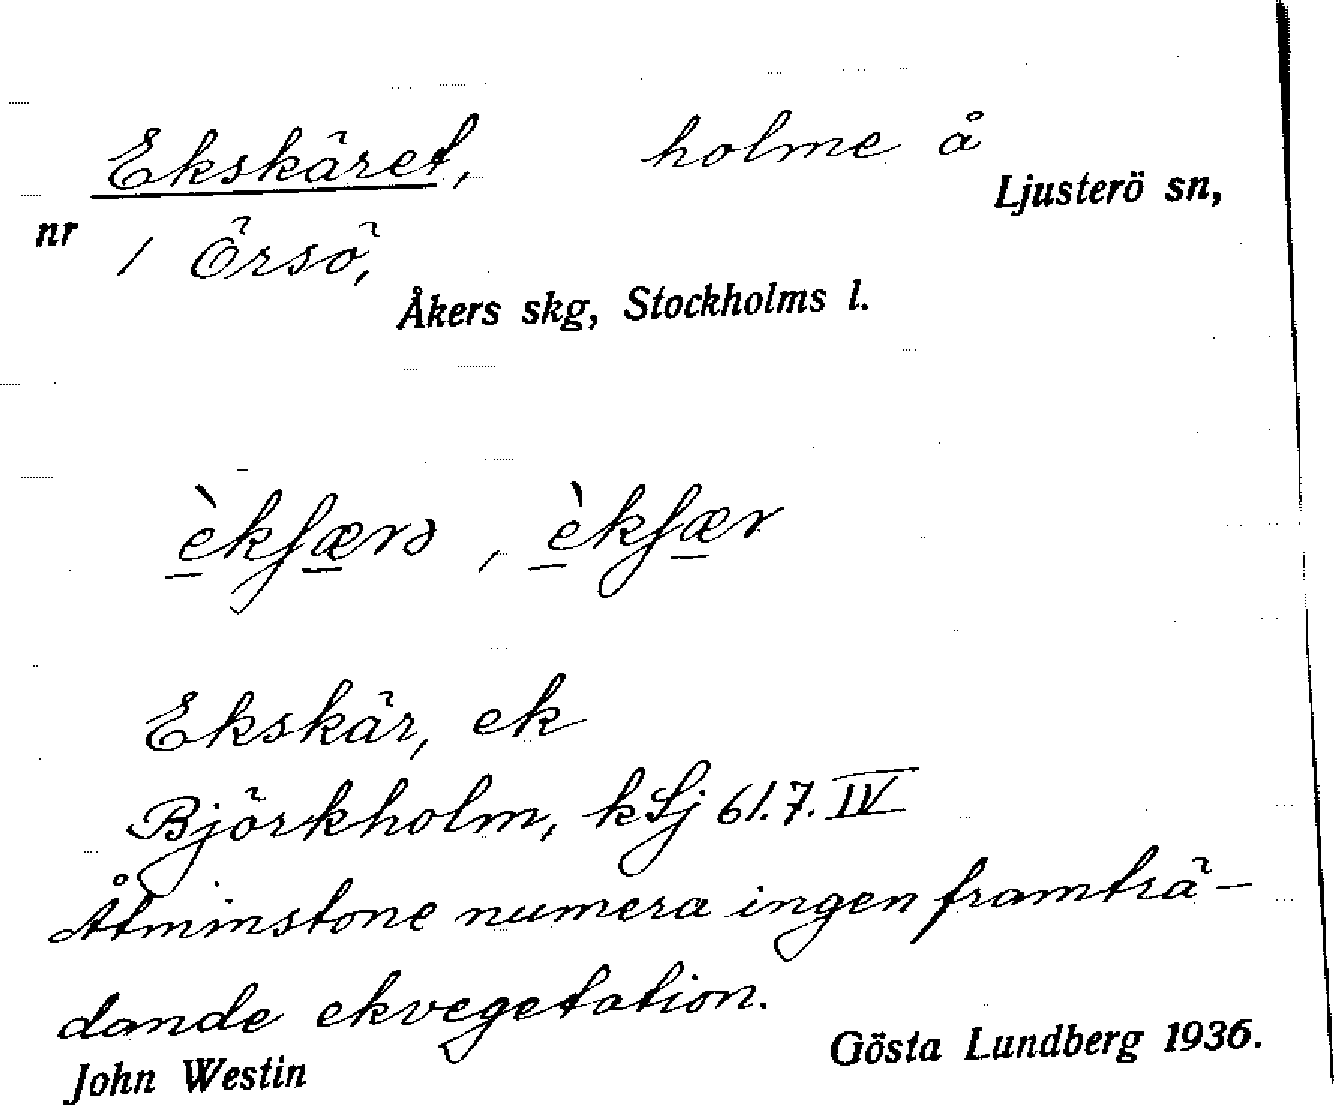 Ekskäret, holme å
Ljusterö sn,
nr 1 Örsö,
Åkers skg, Stockholms l.
èkʃærə, èkʃær
Ekskär, ek
Björkholm, kLj 61.7.IV
Åtminstone numera ingen framträ-
dande ekvegetation.
John Westin Gösta Lundberg 1936.